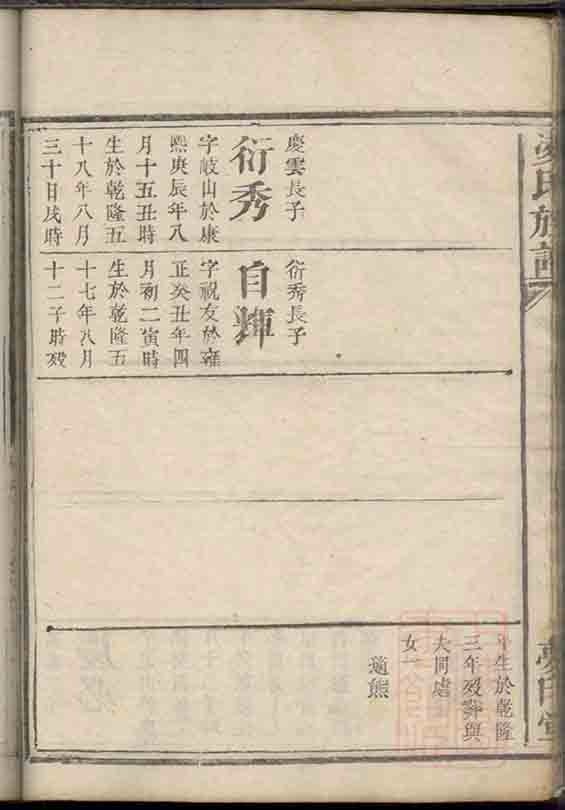 氏族譜
慶雲長子
衍秀
字岐山於康
熙庚辰年八
月十五丑時
生於乾隆五
十八年八月
三十日戌時
衍秀長子
自輝
字祝友於雍
正癸丑年四
月初二寅時
生於乾隆五
十七年八月
十二子時歿
生於乾隆
三年歿葬與
夫同處
女一
適熊